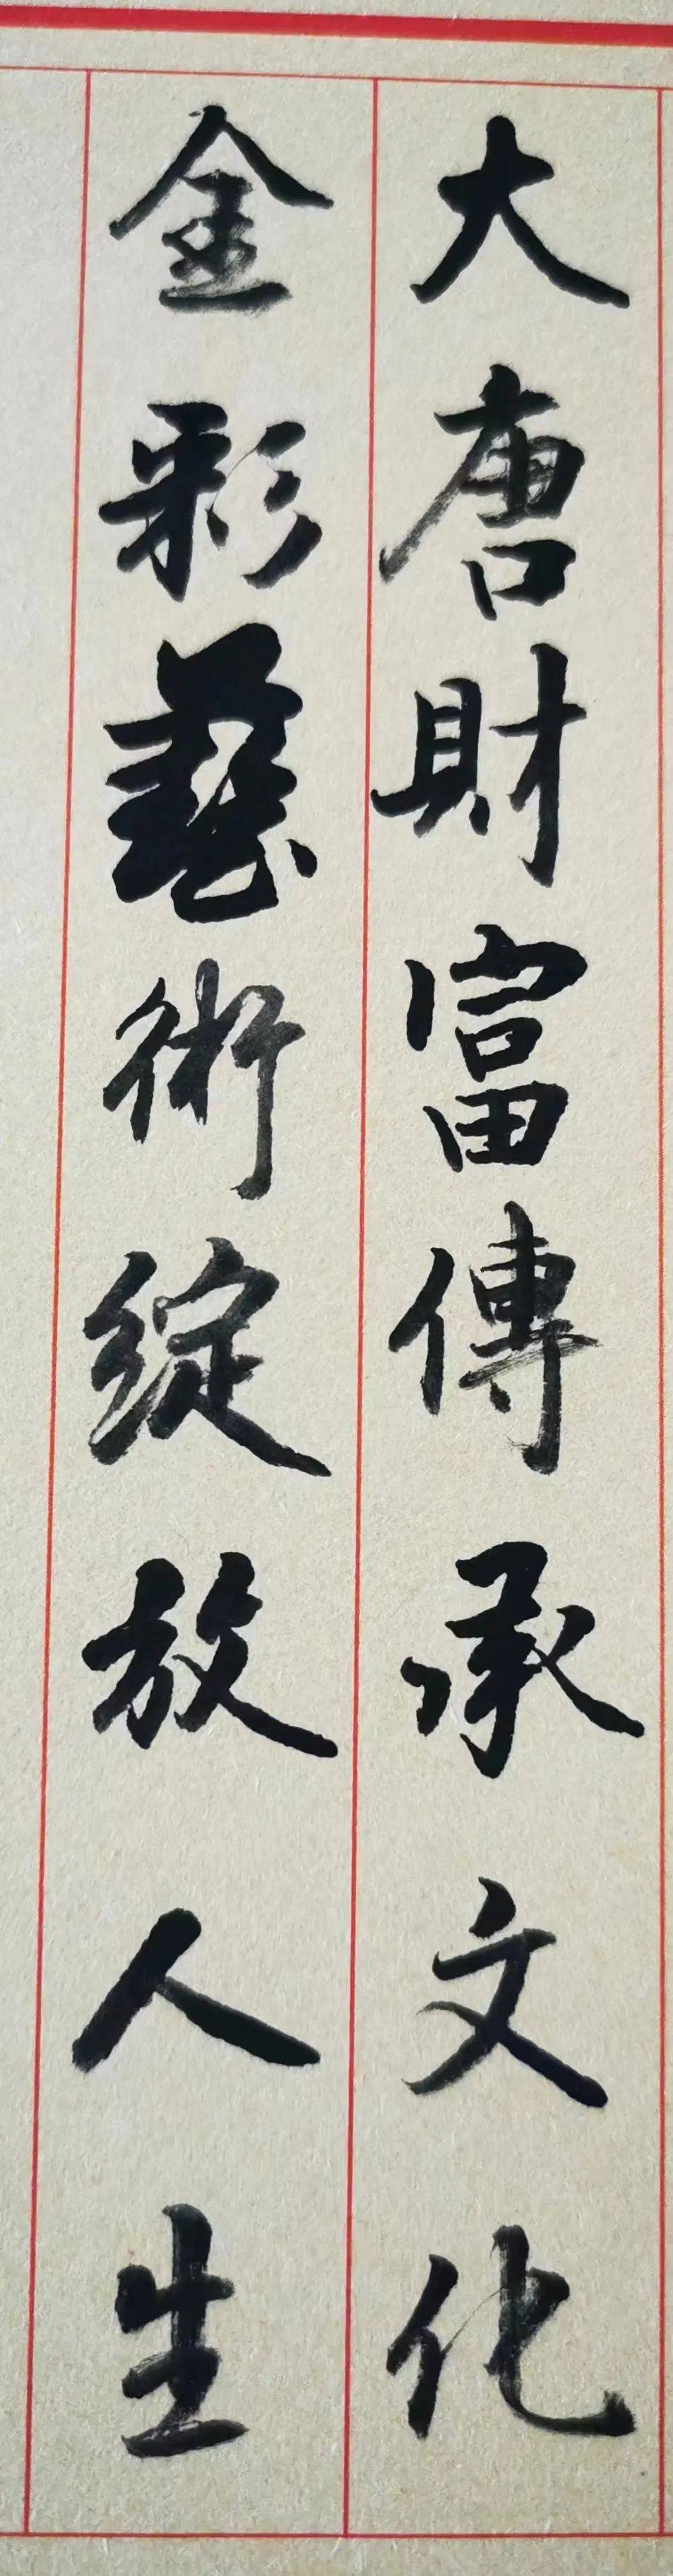 大唐財富傳承文化
金彩藝術綻放人生